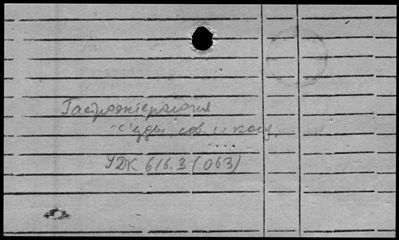 Гастроэнтерология
съезды, сов. и конф.
....
УДК 616.3 (063)